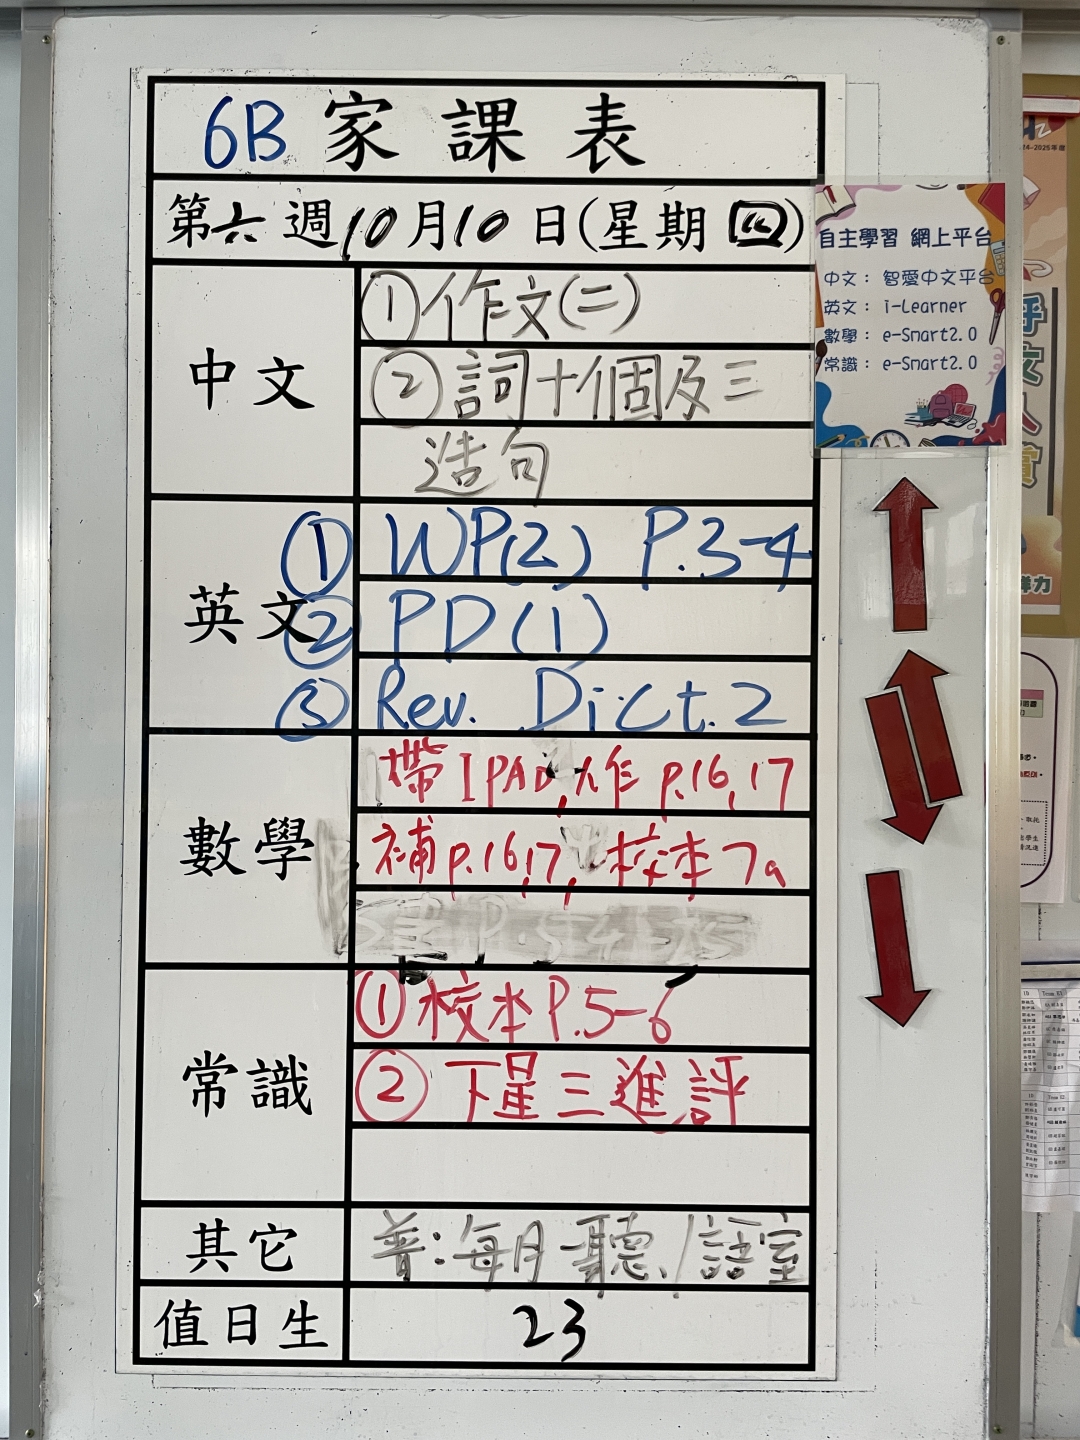 6B 家課表
第六週10月10日(星期四)
中文
①作文(二)
②詞十個及三
造句
英文
① WP(2) P.3-4
② PD(1)
③ Rev. Dict.2
數學
帶IPAD,大作 p.16,17
補p.16,17,校本7a
常識
①校本P.5-6
②下星三進評
其它
普:每月一聽、/語室
值日生
23
自主學習 網上平台
中文: 智愛中文平台
英文: i-Learner
數學: e-Smart2.0
常識: e-Smart2.0